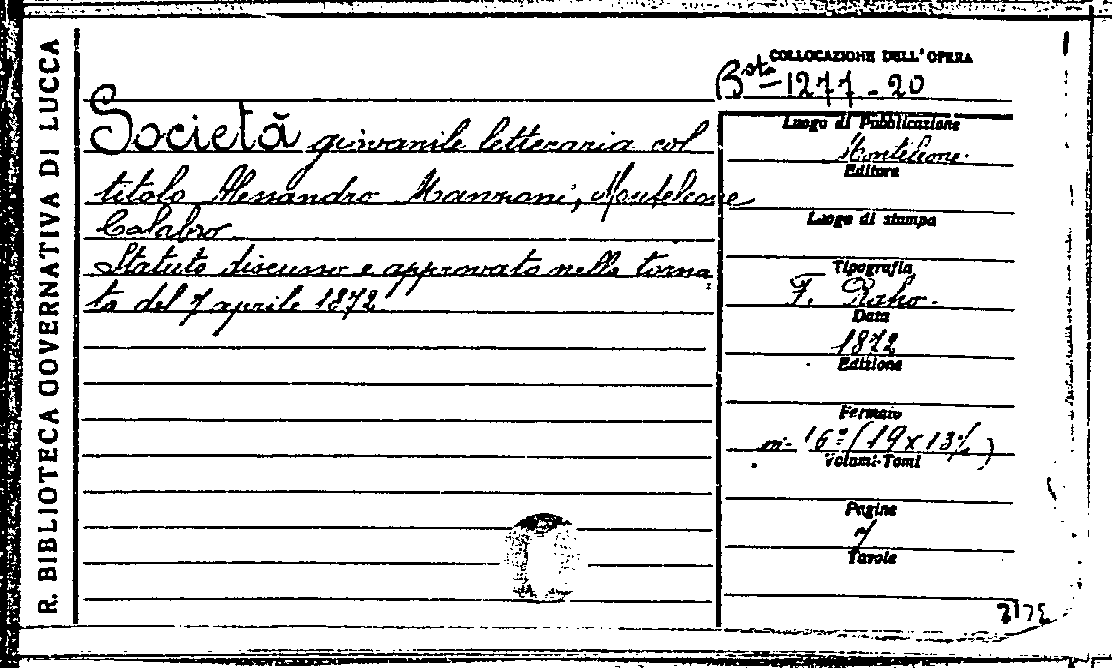 R. BIBLIOTECA GOVERNATIVA DI LUCCA
COLLOCAZIONE DELL'OPERA
Bsta 1277-20
Società giovanile letteraria col
titolo Alessandro Manzoni, Monteleone
Calabro
Statuto discusso e approvato nella torna
ta del 7 aprile 1872
Luogo di Pubblicazione
Monteleone
Editore
Luogo di stampa
Tipografia
F. Raho.
Data
1872
Edizione
Formato
in-16° (19x13½)
Volumi-Tomi
Pagine
7
Tavole